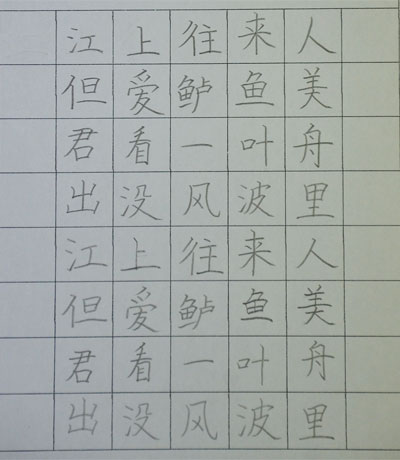 江上往来人
但爱鲈鱼美
君看一叶舟
出没风波里
江上往来人
但爱鲈鱼美
君看一叶舟
出没风波里